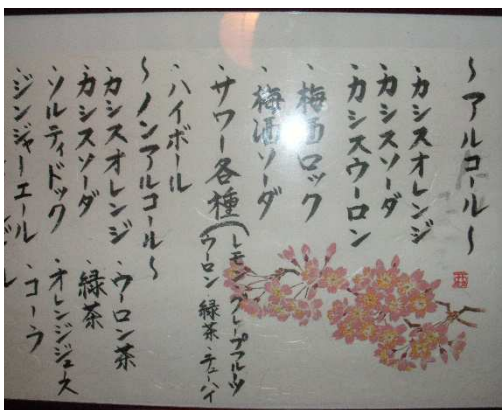 〜アルコール〜
・カシスオレンジ
・カシスソーダ
・カシスウーロン
・梅酒ロック
・梅酒ソーダ
・サワー各種(レモン グレープフルーツ
ウーロン 緑茶 チューハイ
・ハイボール
〜ノンアルコール〜
・カシスオレンジ ・ウーロン茶
・カシスソーダ ・緑茶
・ソルティドック ・オレンジジュース
ジンジャーエール ・コーラ